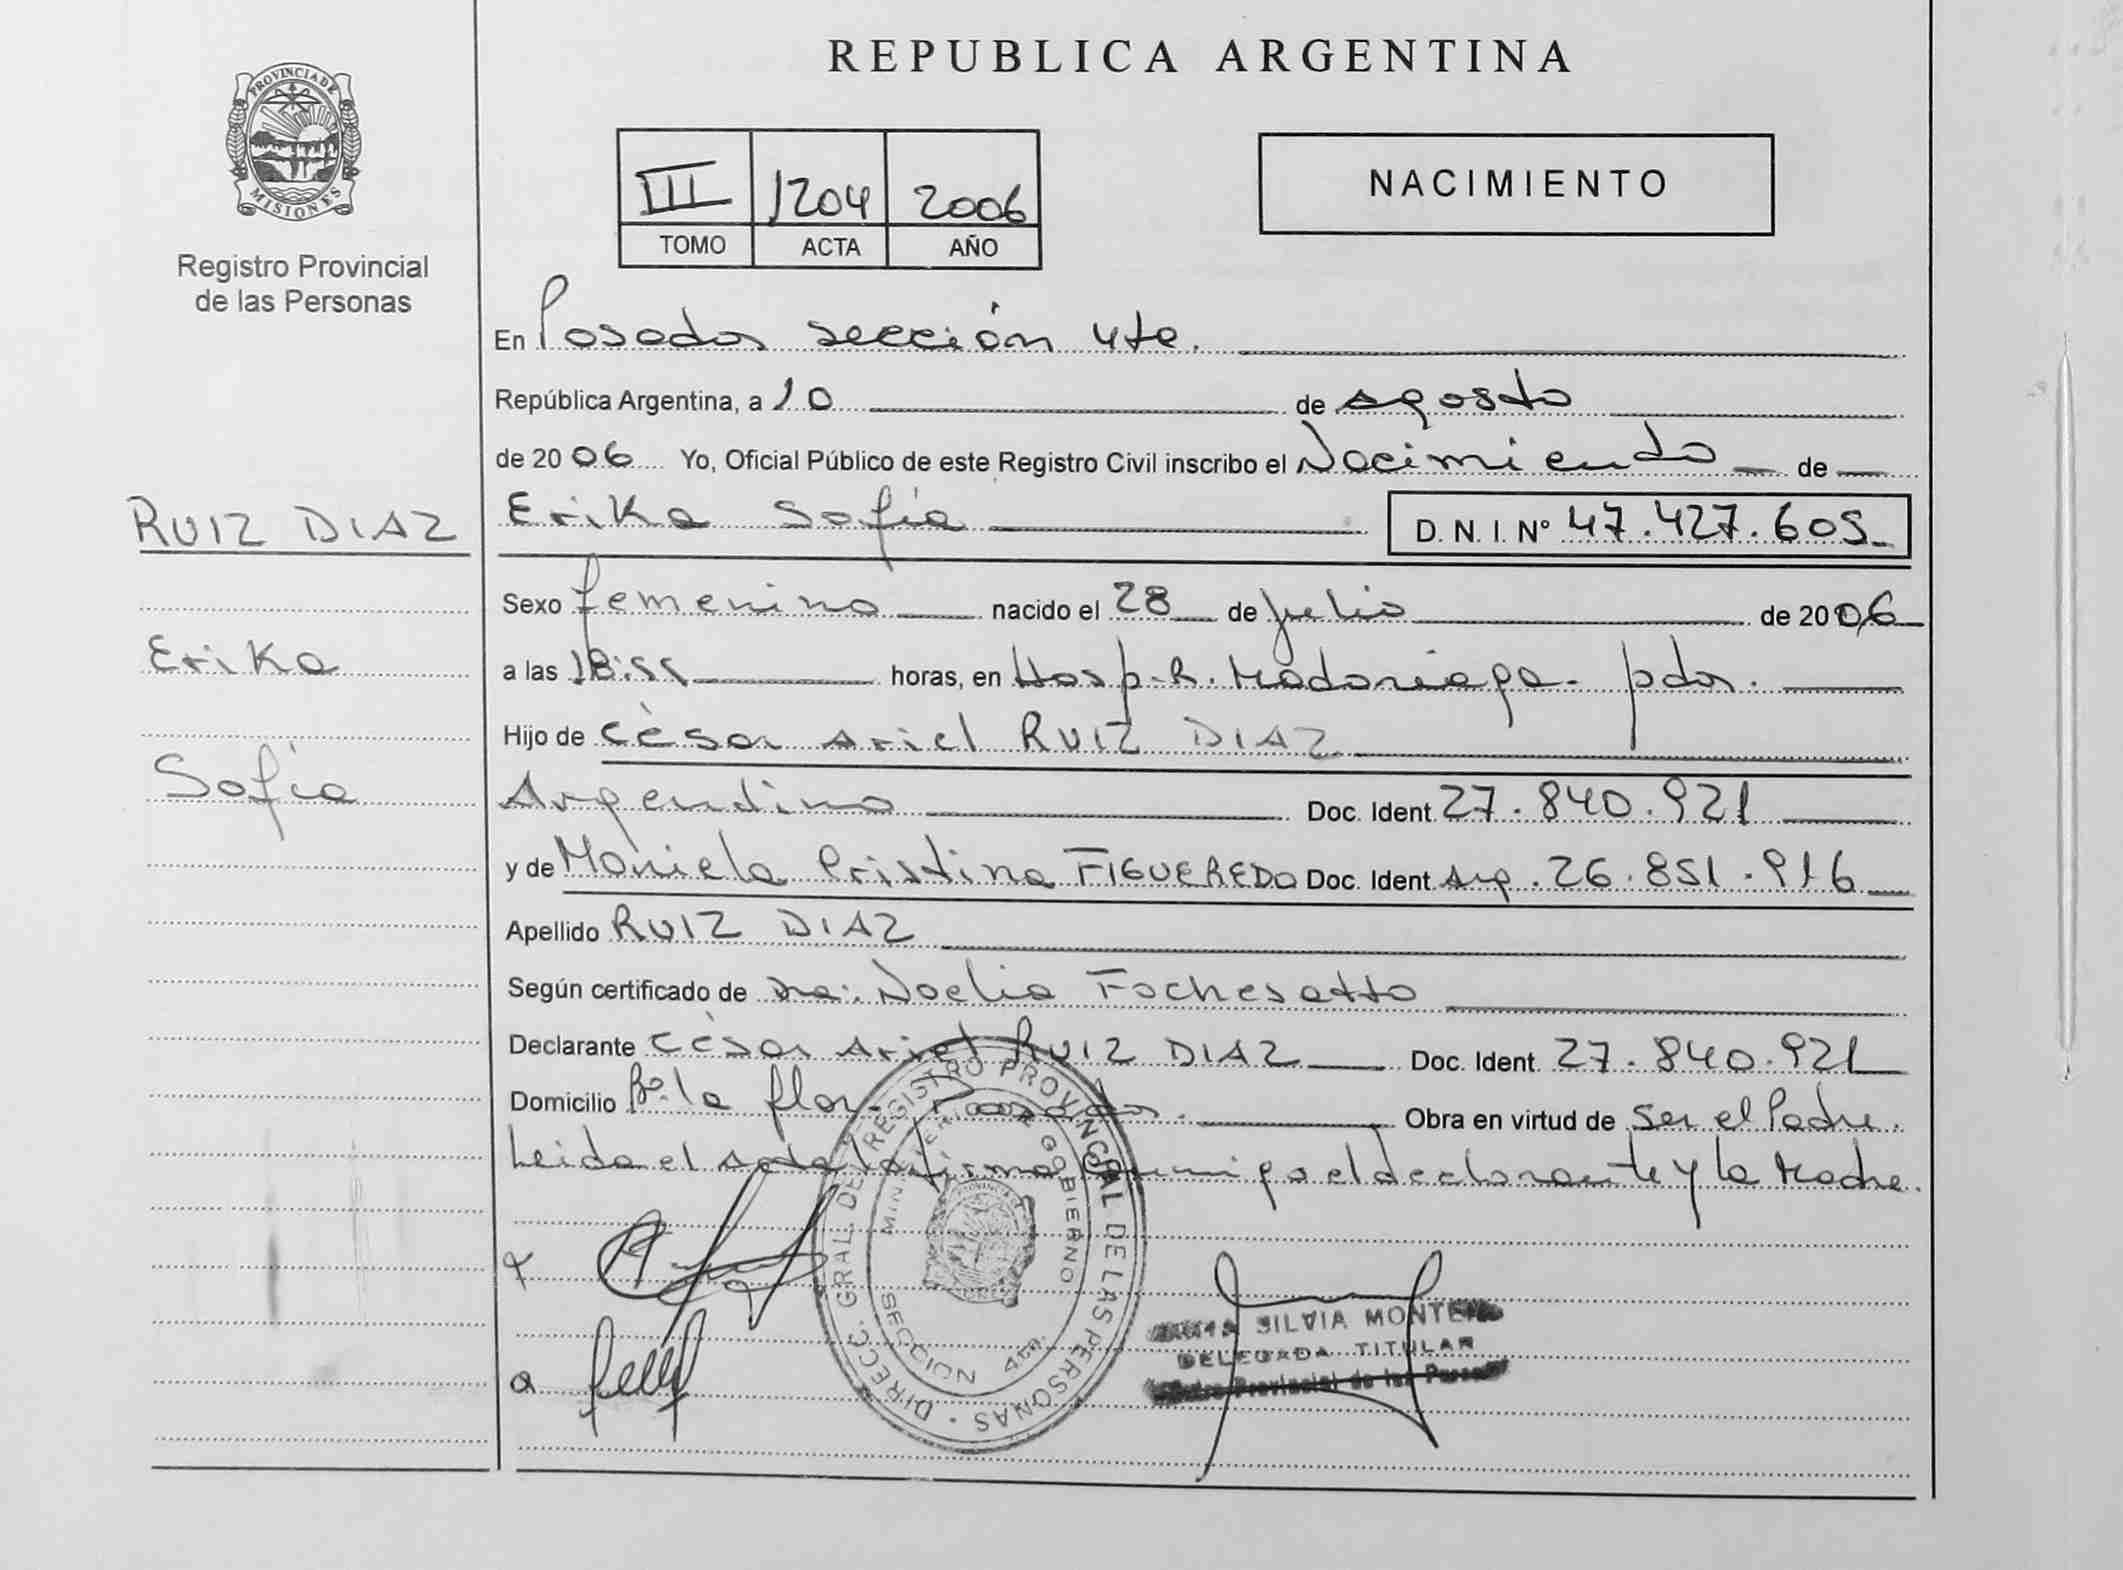 REPUBLICA ARGENTINA
PROVINCIA DE
MISIONES
Registro Provincial
de las Personas
III 1204 2006
TOMO ACTA AÑO
NACIMIENTO
En Posadas sección 4ta.
República Argentina, a 10 de agosto
de 2006 Yo, Oficial Público de este Registro Civil inscribo el Nacimiento de
RUIZ DIAZ
Erika Sofía D. N. I. Nº 47.427.605
Sexo femenino nacido el 28 de julio de 2006
Erika
a las 18:55 horas, en Hosp. R. Madariaga - pdas.
Hijo de Cèsar Ariel RUIZ DIAZ
Sofía
Argentino Doc. Ident. 27.840.921
y de Mariela Cristina FIGUEREDO Doc. Ident. arg. 26.851.916
Apellido RUIZ DIAZ
Según certificado de Dra. Noelia Fochesatto
Declarante Cèsar Ariel RUIZ DIAZ Doc. Ident. 27.840.921
Domicilio Bº la flor - Posadas. Obra en virtud de ser el Padre.
Leida el acta la firma conmigo el declarante y la Madre.
DIRECC. GRAL. DE REGISTRO PROVINCIAL DE LAS PERSONAS
MINISTERIO DE GOBIERNO
SECCION 4ta.
SILVIA MONTE
DELEGADA TITULAR
Provincial de las